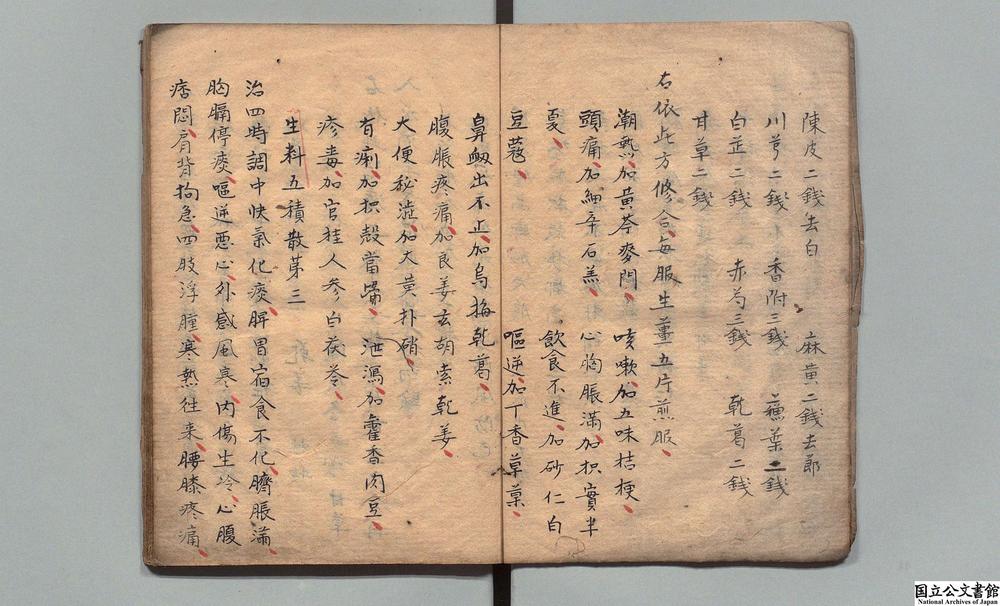 陳皮二錢去白　麻黄二錢去節
川芎二錢　香附三錢　蘓葉二錢
白芷二錢　赤芍三錢　乾葛二錢
甘草二錢
右依此方修合、毎服生薑五片煎服、
潮熱、加黄芩麥門、咳嗽、加五味桔梗、
頭痛、加細辛石羔、心胸脹滿、加枳實半
夏、　飲食不進、加砂仁白
豆蔻、　嘔逆、加丁香草菓、
鼻衂出不止、加烏梅乾葛、
腹脹疼痛、加良姜玄胡索乾姜、
大便秘澁、加大黄朴硝、
有痢、加枳殻當歸、泄瀉、加藿香肉豆、
疹毒、加官桂人参白茯苓、
生料五積散第三
治四時調中快氣化痰、脾胃宿食不化、臍脹滿、
胸膈停痰、嘔逆悪心、外感風寒、内傷生冷、心腹
痞悶、肩背拘急、四肢浮腫、寒熱往来、腰膝疼痛、
国立公文書館
National Archives of Japan